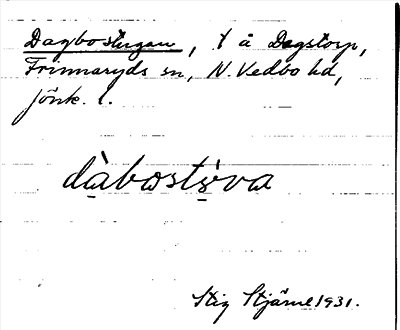 Dagbostugan, t å Dagstorp,
Frinnaryds sn, N. Vedbo hd,
Jönk. l.
dàbostẁva
Stig Stjärne 1931.